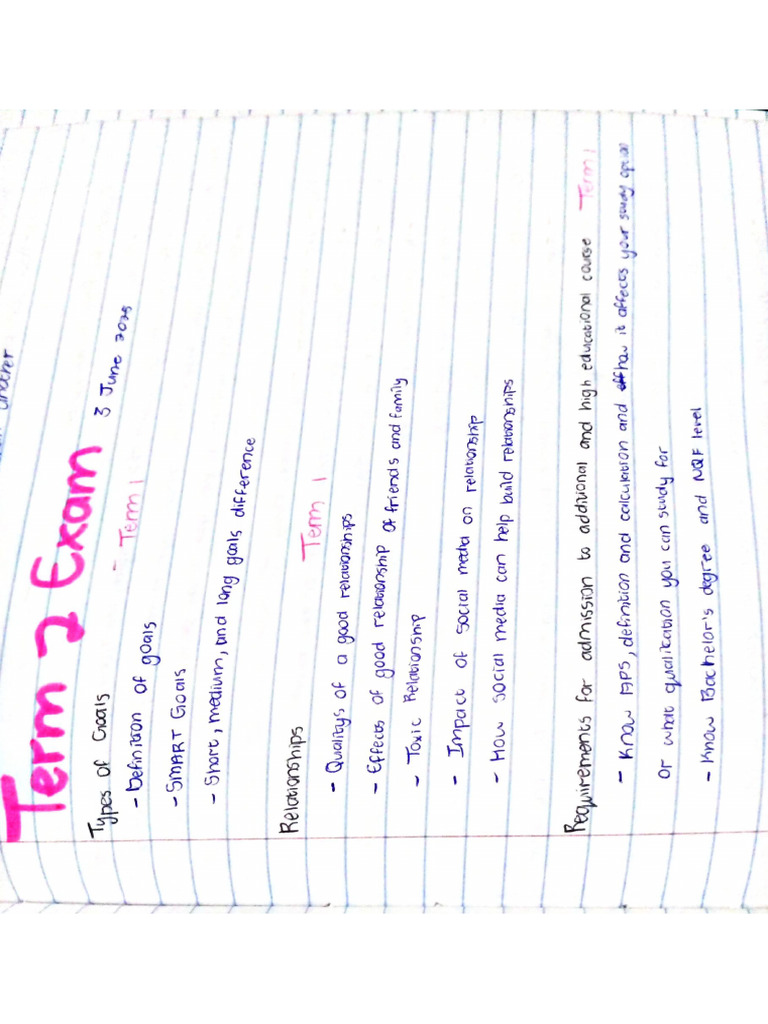 another
Term 2 Exam 3 June 2025
Types of Goals - Term 1
- Definition of goals
- SMART Goals
- Short, medium, and long goals difference
Relationships Term 1
- Qualitys of a good relationships
- Effects of good relationship of friends and family
- Toxic Relationship
- Impact of social media on relationship
- How social media can help build relationships
Requirements for admission to additional and high educational course Term 1
- Know APS, definition and calculation and how it affects your study option
or what qualication you can study for
- Know Bachelor's degree and NQF level